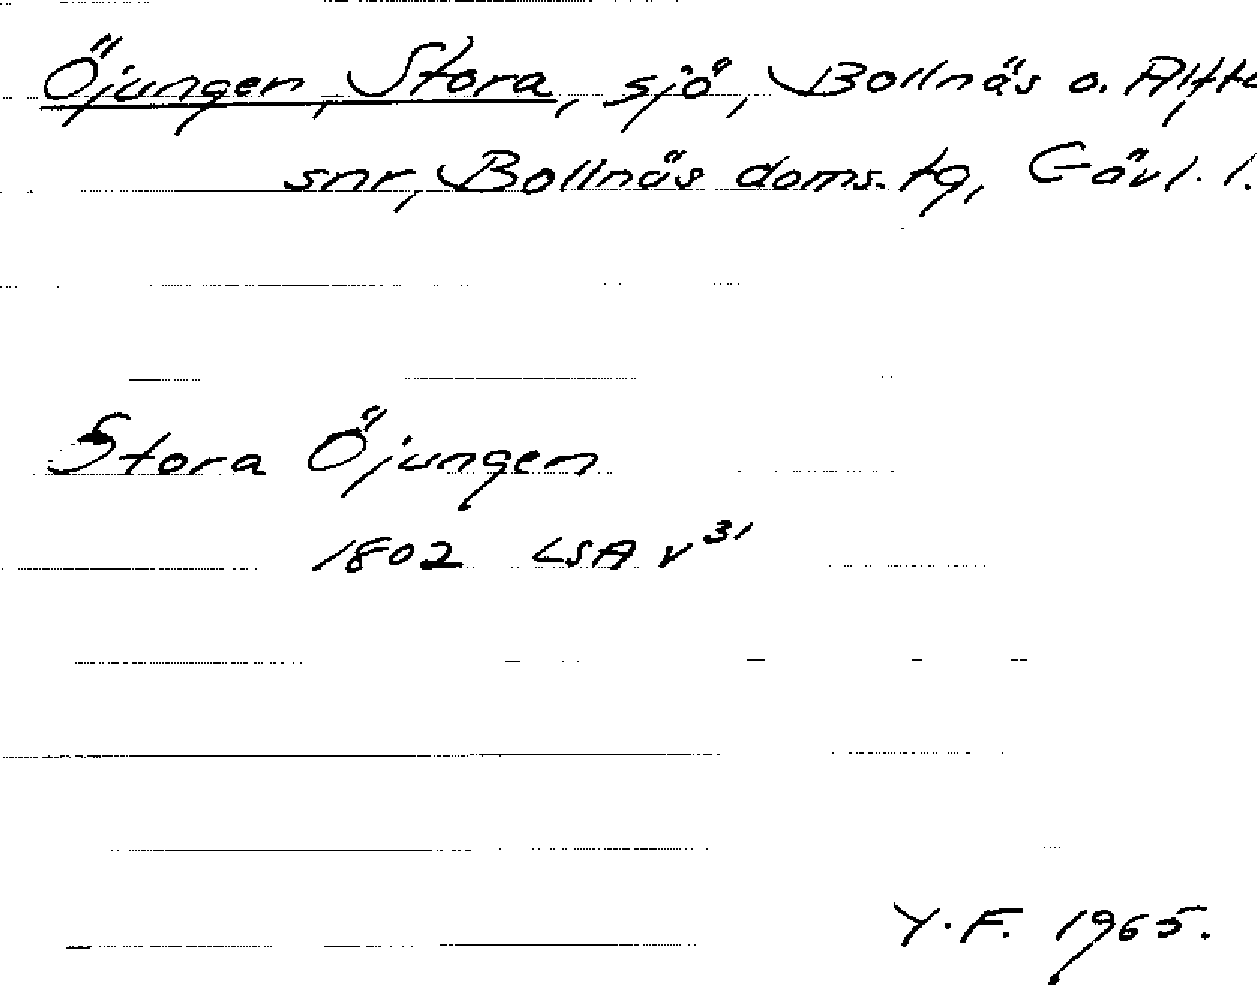 Öjungen, Stora, sjö, Bollnäs o. Alfta
snr, Bollnäs doms. tg, Gävl. l.
Stora Öjungen
1802 LSA v 31
Y. F. 1965.